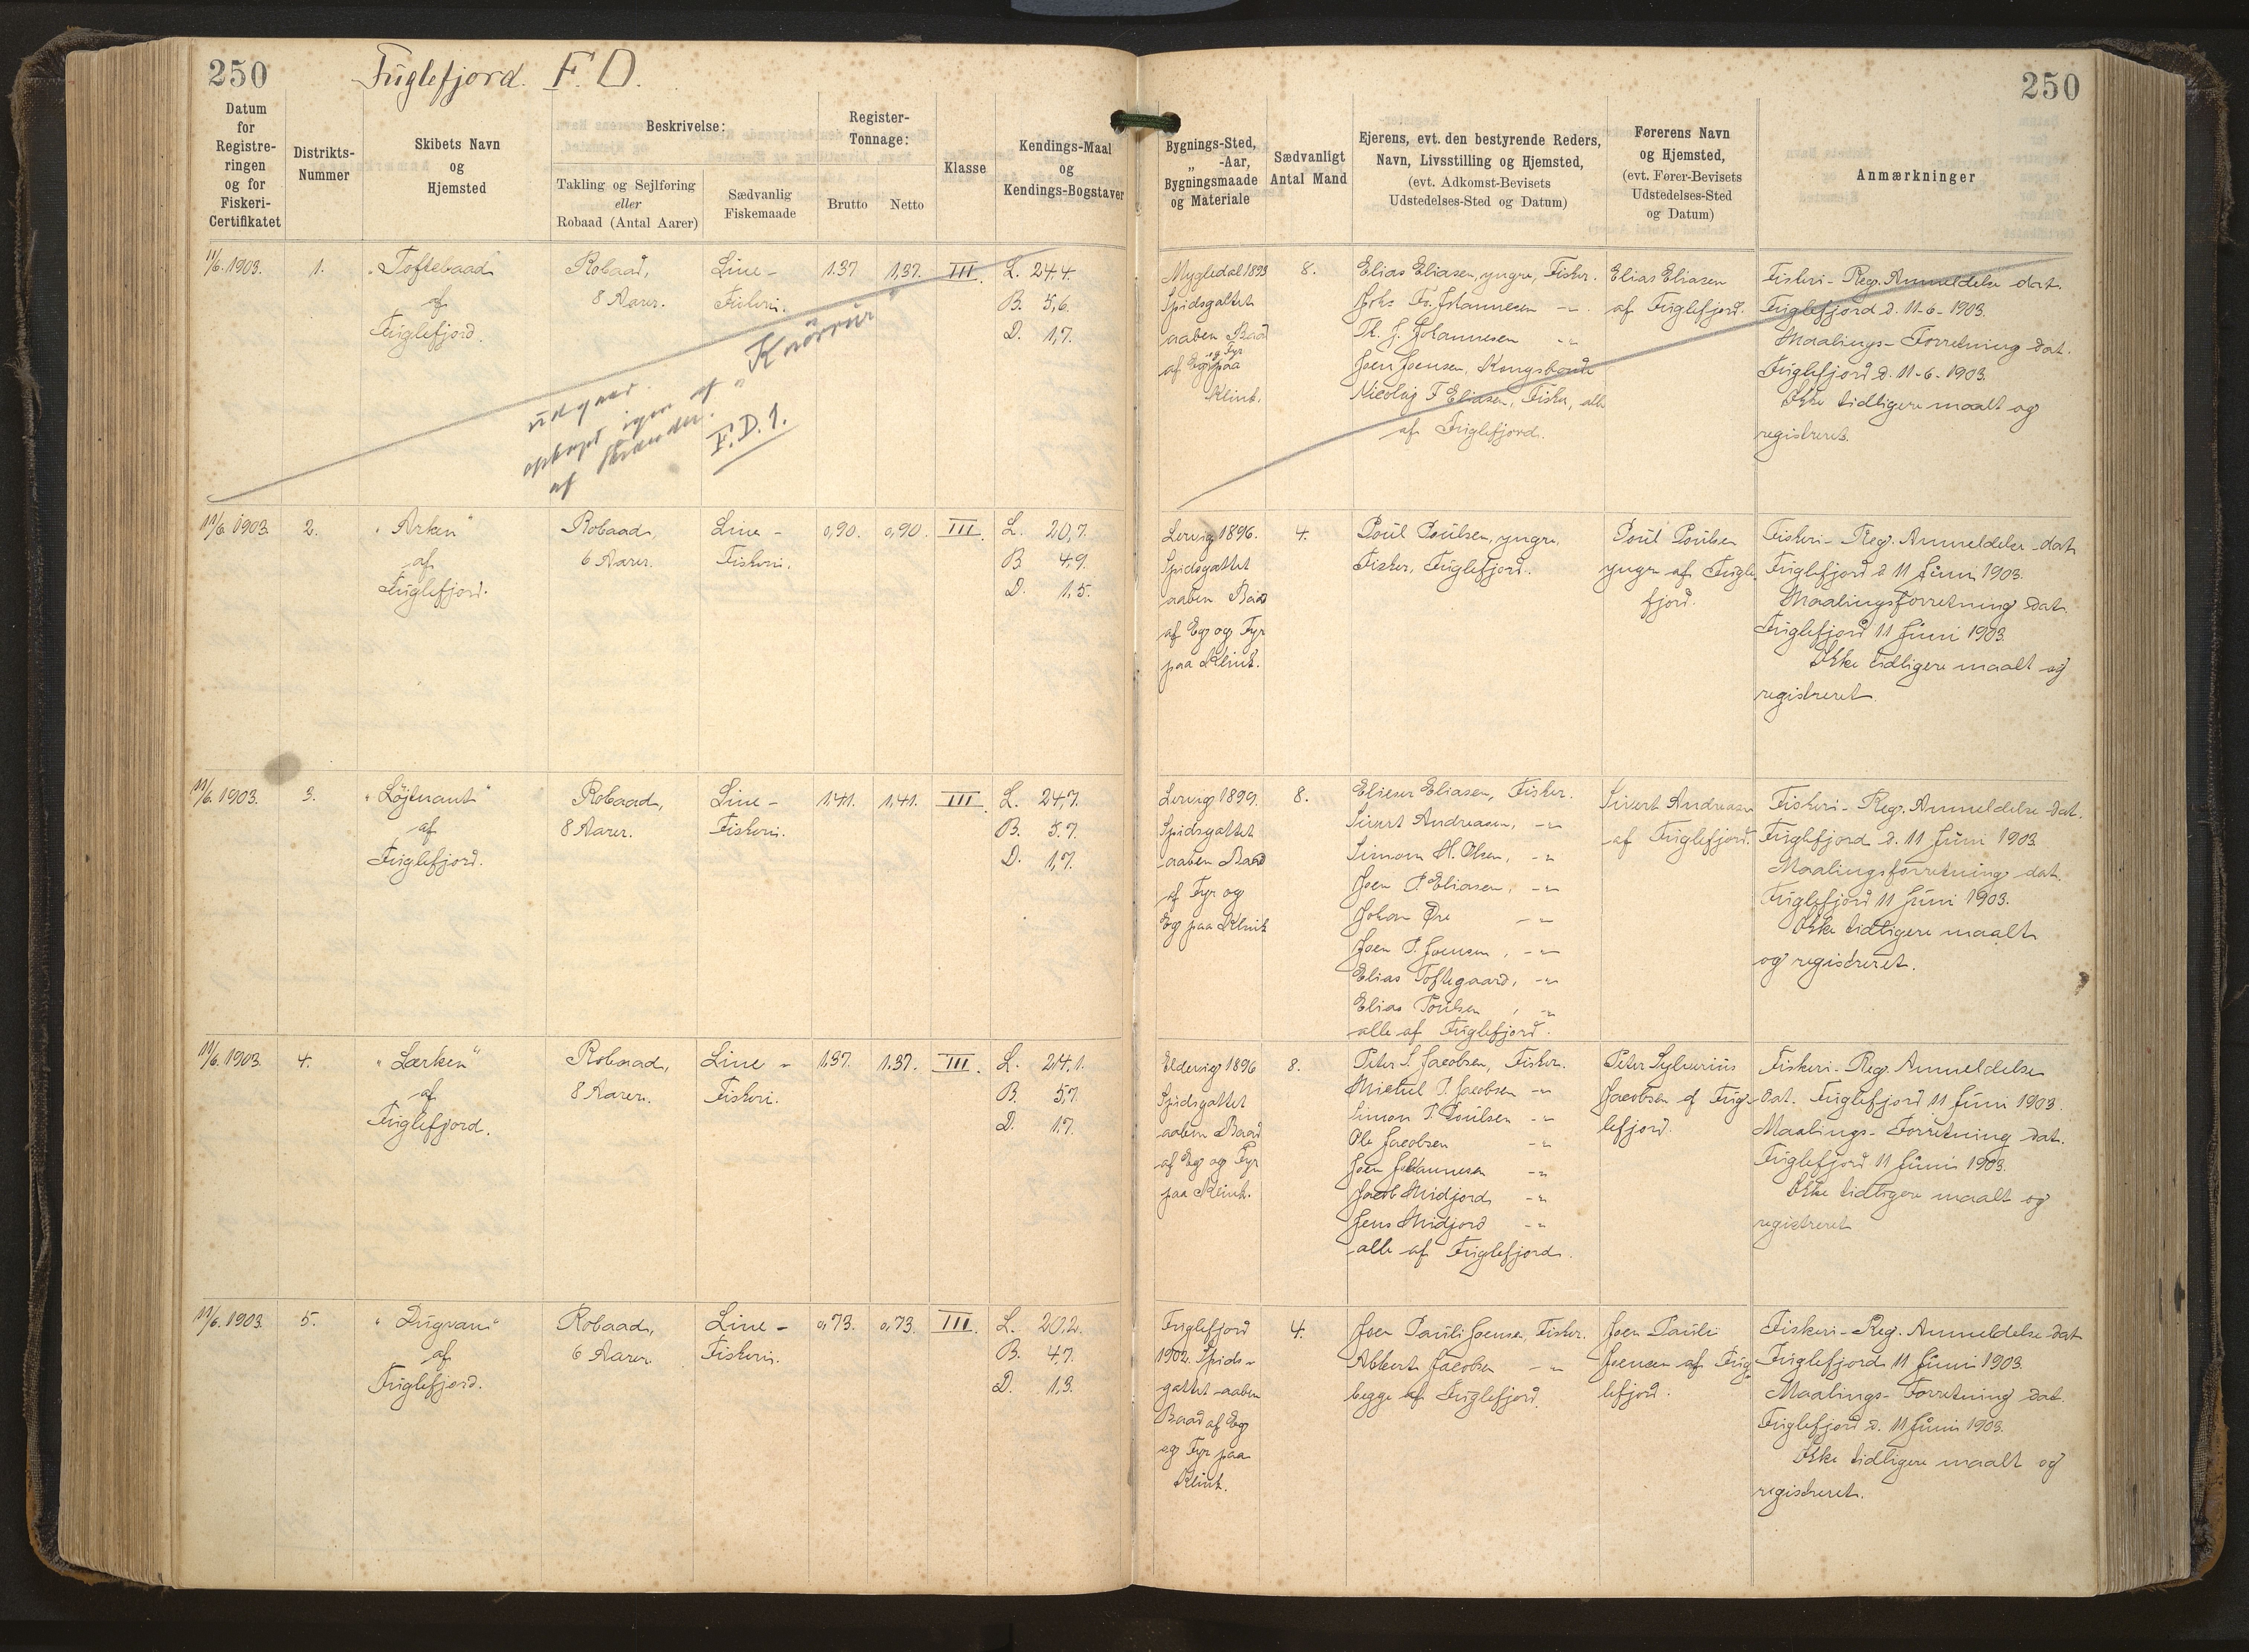 250
Fuglefjord. F. D.
250
Datum
for
Registre-
ringen
og for
Fiskeri-
Certifikatet
Distrikts-
Nummer
Skibets Navn
og
Hjemsted
Beskrivelse:
Takling og Sejlføring
eller
Robaad (Antal Aarer)
Sædvanlig
Fiskemaade
Register-
Tonnage:
Brutto
Netto
Klasse
Kendings-Maal
og
Kendings-Bogstaver
Bygnings-Sted,
„ -Aar,
Bygningsmaade
og Materiale
Sædvanligt
Antal Mand
Ejerens, evt. den bestyrende Reders,
Navn, Livsstilling og Hjemsted,
(evt. Adkomst-Bevisets
Udstedelses-Sted og Datum)
Førerens Navn
og Hjemsted,
(evt. Fører-Bevisets
Udstedelses-Sted
og Datum)
Anmærkninger
11/6. 1903.
1.
„Toftebaad"
af
Fuglefjord.
Robaad,
8 Aarer.
Line-
Fiskeri.
1.37
1,37.
III.
L. 24.4.
B. 5,6.
D. 1,7.
udgaar.
optaget igen af „Knörrur"
af Strander.
F.D. 1.
Mygledal 1893
Spidsgattet
aaben Baad
af Eg og Fyr
paa
Klink.
8.
Elias Eliasen, yngre, Fisker.
Johs Fr. Johannesen -"-
Th. J. Johannesen -"-
Joen Joensen, Kongsbonde
Nicolaj F Eliasen, Fisker, alle
af Fuglefjord.
Elias Eliasen
af Fuglefjord.
Fiskeri-Reg. Anmeldelse dat.
Fuglefjord d. 11-6-1903.
Maalings-Forretning dat.
Fuglefjord d. 11-6-1903.
Ikke tidligere maalt og
registreret.
11/6. 1903.
2.
„Arken"
af
Fuglefjord.
Robaad,
6 Aarer.
Line-
Fiskeri.
0,90.
0,90.
III.
L. 20,7.
B. 4,9.
D. 1,5.
Lervig 1896.
Spidsgattet
aaben Baad
af Eg og Fyr
paa Klink.
4.
Poul Poulsen, yngre,
Fisker, Fuglefjord.
Poul Poulsen
yngre af Fugle
fjord.
Fiskeri-Reg. Anmeldelse dat
Fuglefjord d 11 Juni 1903.
Maalingsforretning dat.
Fuglefjord 11 Juni 1903.
Ikke tidligere maalt og
registreret
11/6. 1903.
3.
„Löjtnant"
af
Fuglefjord.
Robaad,
8 Aarer.
Line-
Fiskeri.
1.41.
1,41.
III.
L. 24,7.
B. 5.7.
D. 1,7.
Lervig 1899.
Spidsgattet
aaben Baad
af Fyr og
Eg paa Klink
8.
Elieser Eliasen, Fisker.
Sivert Andreasen, -"-
Simon H. Olsen, -"-
Joen P. Eliasen, -"-
Johan Øre -"-
Joen P. Joensen, -"-
Elias Toftegaard, -"-
Elias Poulsen, -"-
alle af Fuglefjord.
Sivert Andreasen
af Fuglefjord.
Fiskeri-Reg. Anmeldelse dat.
Fuglefjord d. 11 Juni 1903
Maalingsforretning dat.
Fuglefjord 11 Juni 1903.
Ikke tidligere maalt
og registreret.
11/6. 1903.
4.
„Lærken"
af
Fuglefjord.
Robaad,
8 Aarer.
Line-
Fiskeri.
1.37.
1.37.
III.
L. 24,1.
B. 5,7.
D. 1.7.
Eldevig 1896
Spidsgattet
aaben Baad
af Eg og Fyr
paa Klink.
8.
Peter S. Jacobsen, Fisker.
Michel P. Jacobsen -"-
Simon P. Poulsen -"-
Ole Jacobsen -"-
Joen Johannesen -"-
Jacob Midjord -"-
Jens Midjord -"-
alle af Fuglefjord.
Peter Sylverius
Jacobsen af Fug-
lefjord.
Fiskeri-Reg. Anmeldelse
dat. Fuglefjord 11 Juni 1903.
Maalings-Forretning dat.
Fuglefjord 11 Juni 1903.
Ikke tidligere maalt og
registreret
11/6. 1903.
5.
„Dugvan"
af
Fuglefjord.
Robaad,
6 Aarer.
Line-
Fiskeri.
0,73.
0,73.
III.
L. 20.2.
B. 4,7.
D. 1,3.
Fuglefjord
1902. Spids-
gattet aaben
Baad af Eg
og Fyr paa
Klink.
4.
Joen Pauli Joensen, Fisker.
Albert Jacobsen -"-
begge af Fuglefjord.
Joen Pauli
Joensen af Fug-
lefjord.
Fiskeri-Reg. Anmeldelse dat
Fuglefjord 11 Juni 1903.
Maalings-Forretning dat.
Fuglefjord d. 11 Juni 1903.
Ikke tidligere maalt og
registreret.